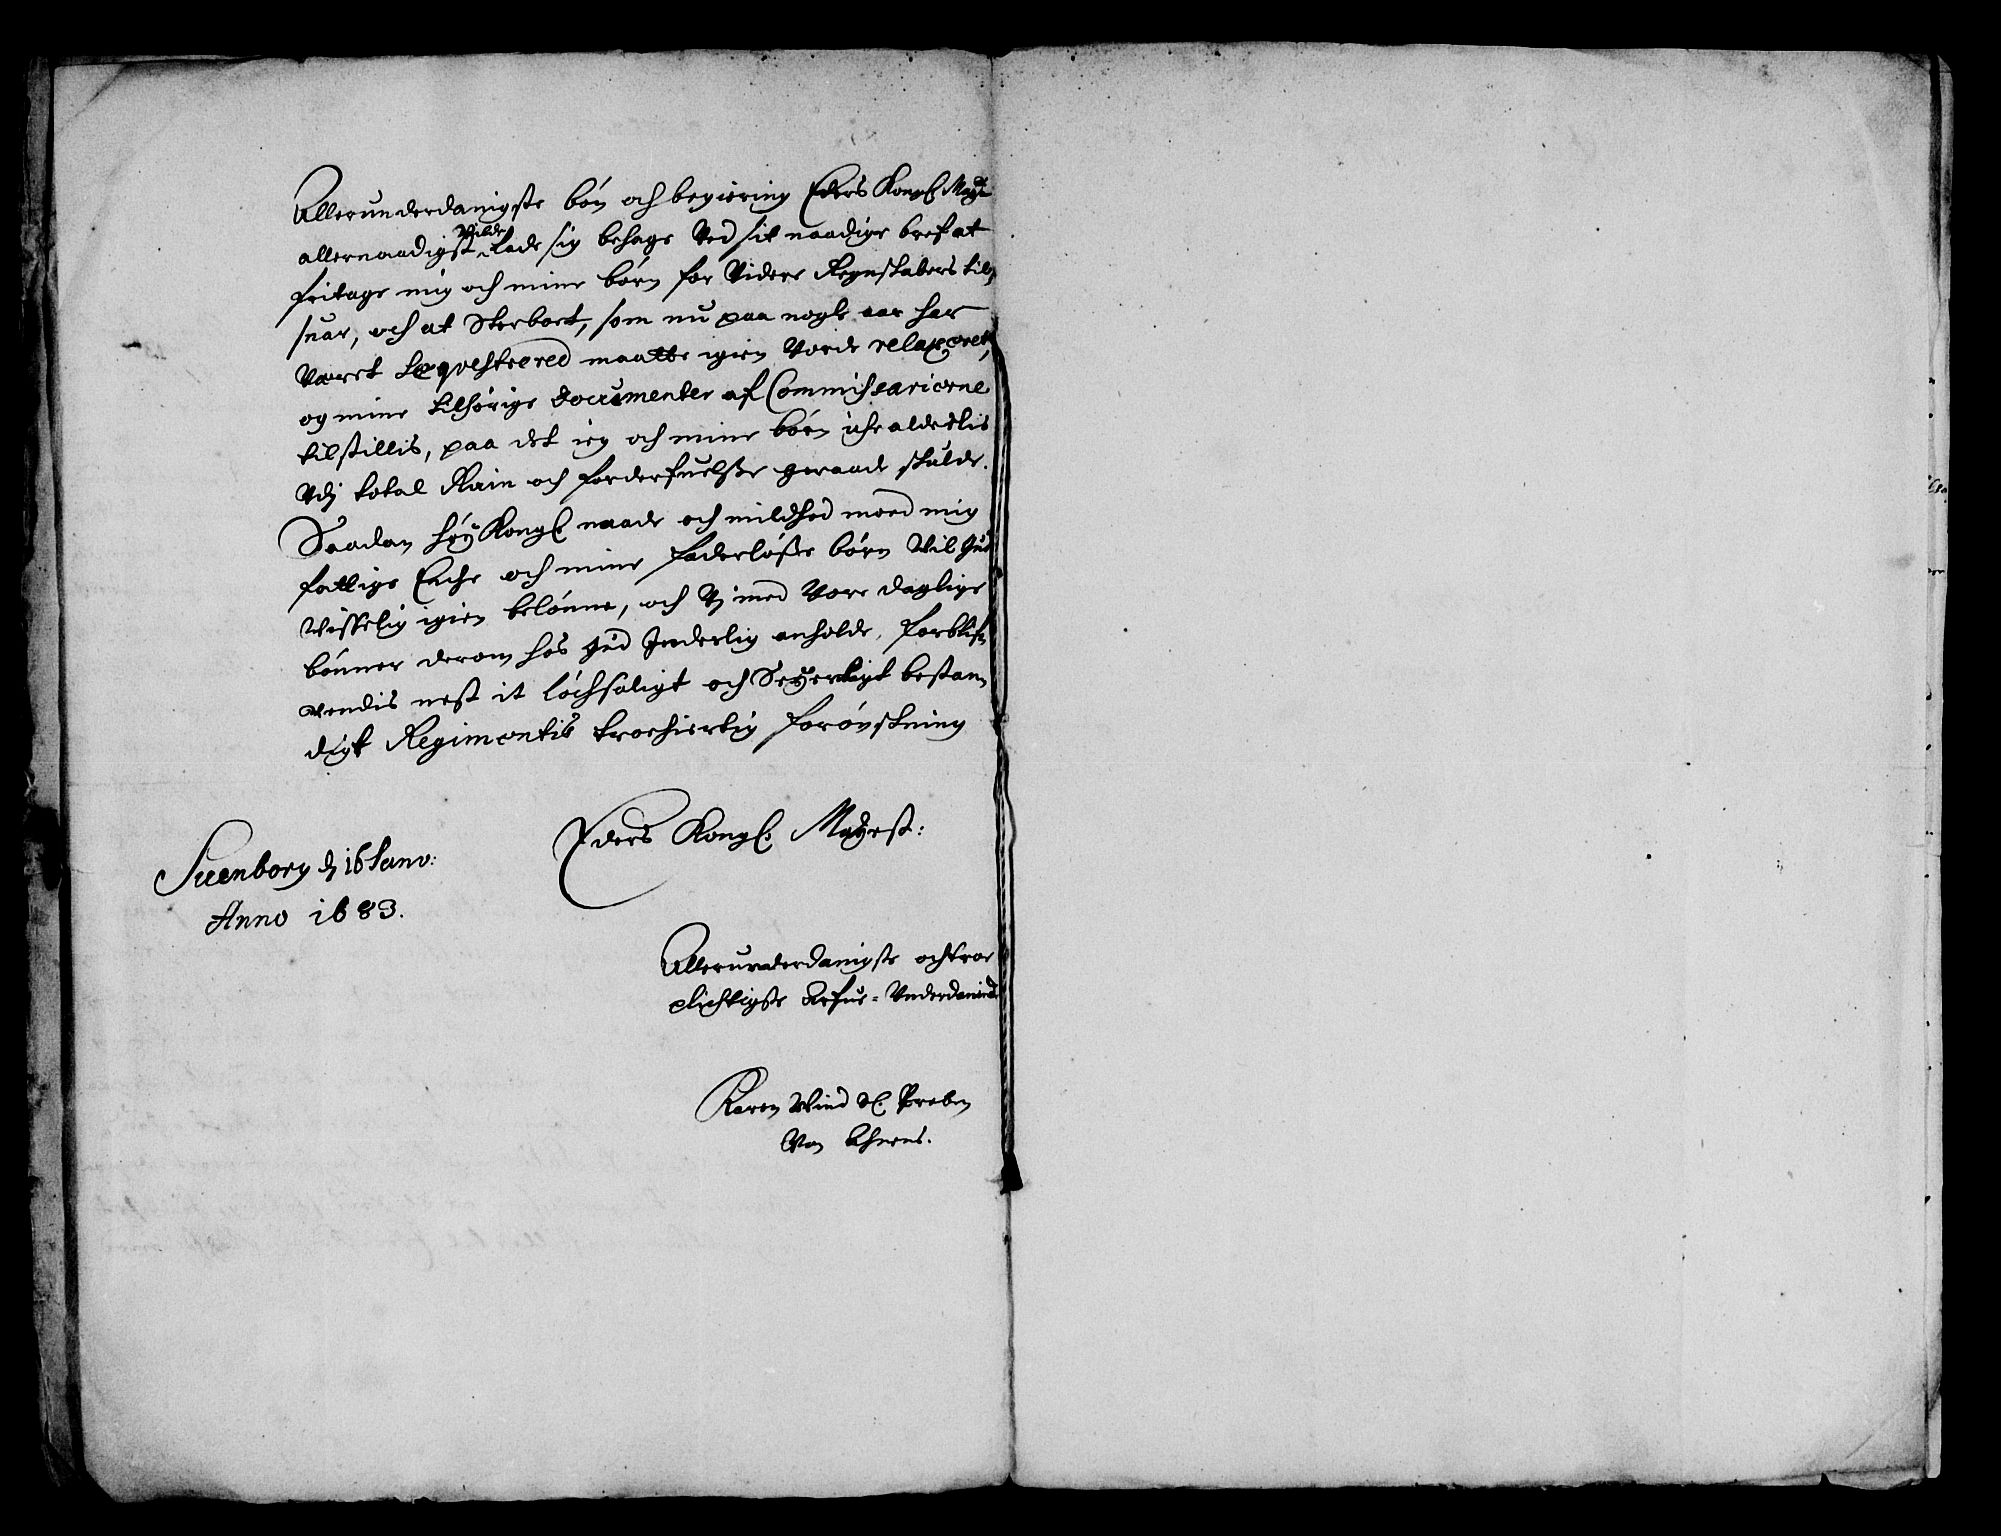 Allerunderdanigste bøn och begiering Eders Kongl Mayst
allernaadigst vilde Lade sig behage Ved sit naadige bref at
fritage mig och mine børn for Videre Regnskabers til,
suar, och at Sterboet, som nu paa nogle aar har
Været Seqvestrered maatte igien Vorde relaxeret,
og mine tilhørige documenter af Commissarierne
tilstillis, paa det ieg och mine børn iche aldelis
Vdj total Ruin och forderfuelsse geraade skulde.
Saadan høy Kongl naade och mildhed moed mig
fattige Enche och mine faderløsse børn Wil Gud
Visselig igien belønne, och Vj med Vore daglige
bønner derom hos Gud Inderlig anholde, forblif,
vendis nest it løchsaligt och Seyerrigt bestan,
digt Regimentis troehiertig forønskning
Eders Kongl Mayest:
Suenborg d 16 Janv:
Anno 1683.
Allerunderdanigste och troe
plichtigste Arfue-Vnderdanind
Karen Wind Sl. Preben
Von Ahnens.